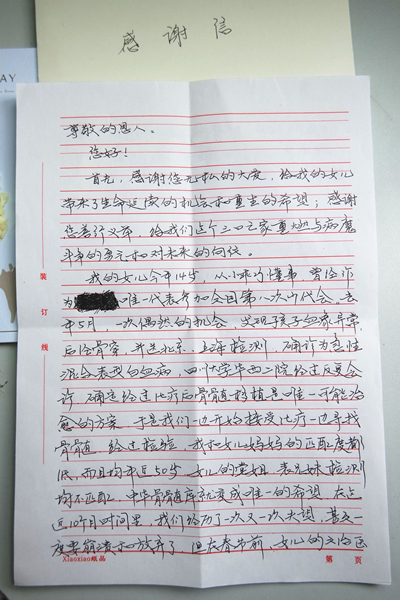 感谢信
AY
尊敬的恩人:
您好!
首先,感谢您无私的大爱,给我的女儿
带来了生命延续的机会和重生的希望;感谢
您善行义举,给我们这个三口之家重燃与病魔
斗争的勇气和对未来的向往。
我的女儿今年14岁,从小乖巧懂事,曾经作
为唯一代表参加全国第八次少代会。去
年5月,一次偶然的机会,发现孩子血象异常,
后经骨穿,并送北京、上海检测,确诊为急性
混合表型白血病,四川大学华西二院经过反复会
诊,确定经过化疗后骨髓移植是唯一可能治
愈的方案。于是我们一边开始接受化疗一边寻找
骨髓。经过检验,我和女儿妈妈的匹配度都
低,而且均年近50岁,女儿的堂姐、表兄妹检测
均不匹配,中华骨髓库就变成唯一的希望。在
近10个月时间里,我们经历了一次又一次失望,甚至一
度要崩溃和放弃了。但在春节前,女儿的主治医
装
订
线
Xiaoxiao纸品
第 页